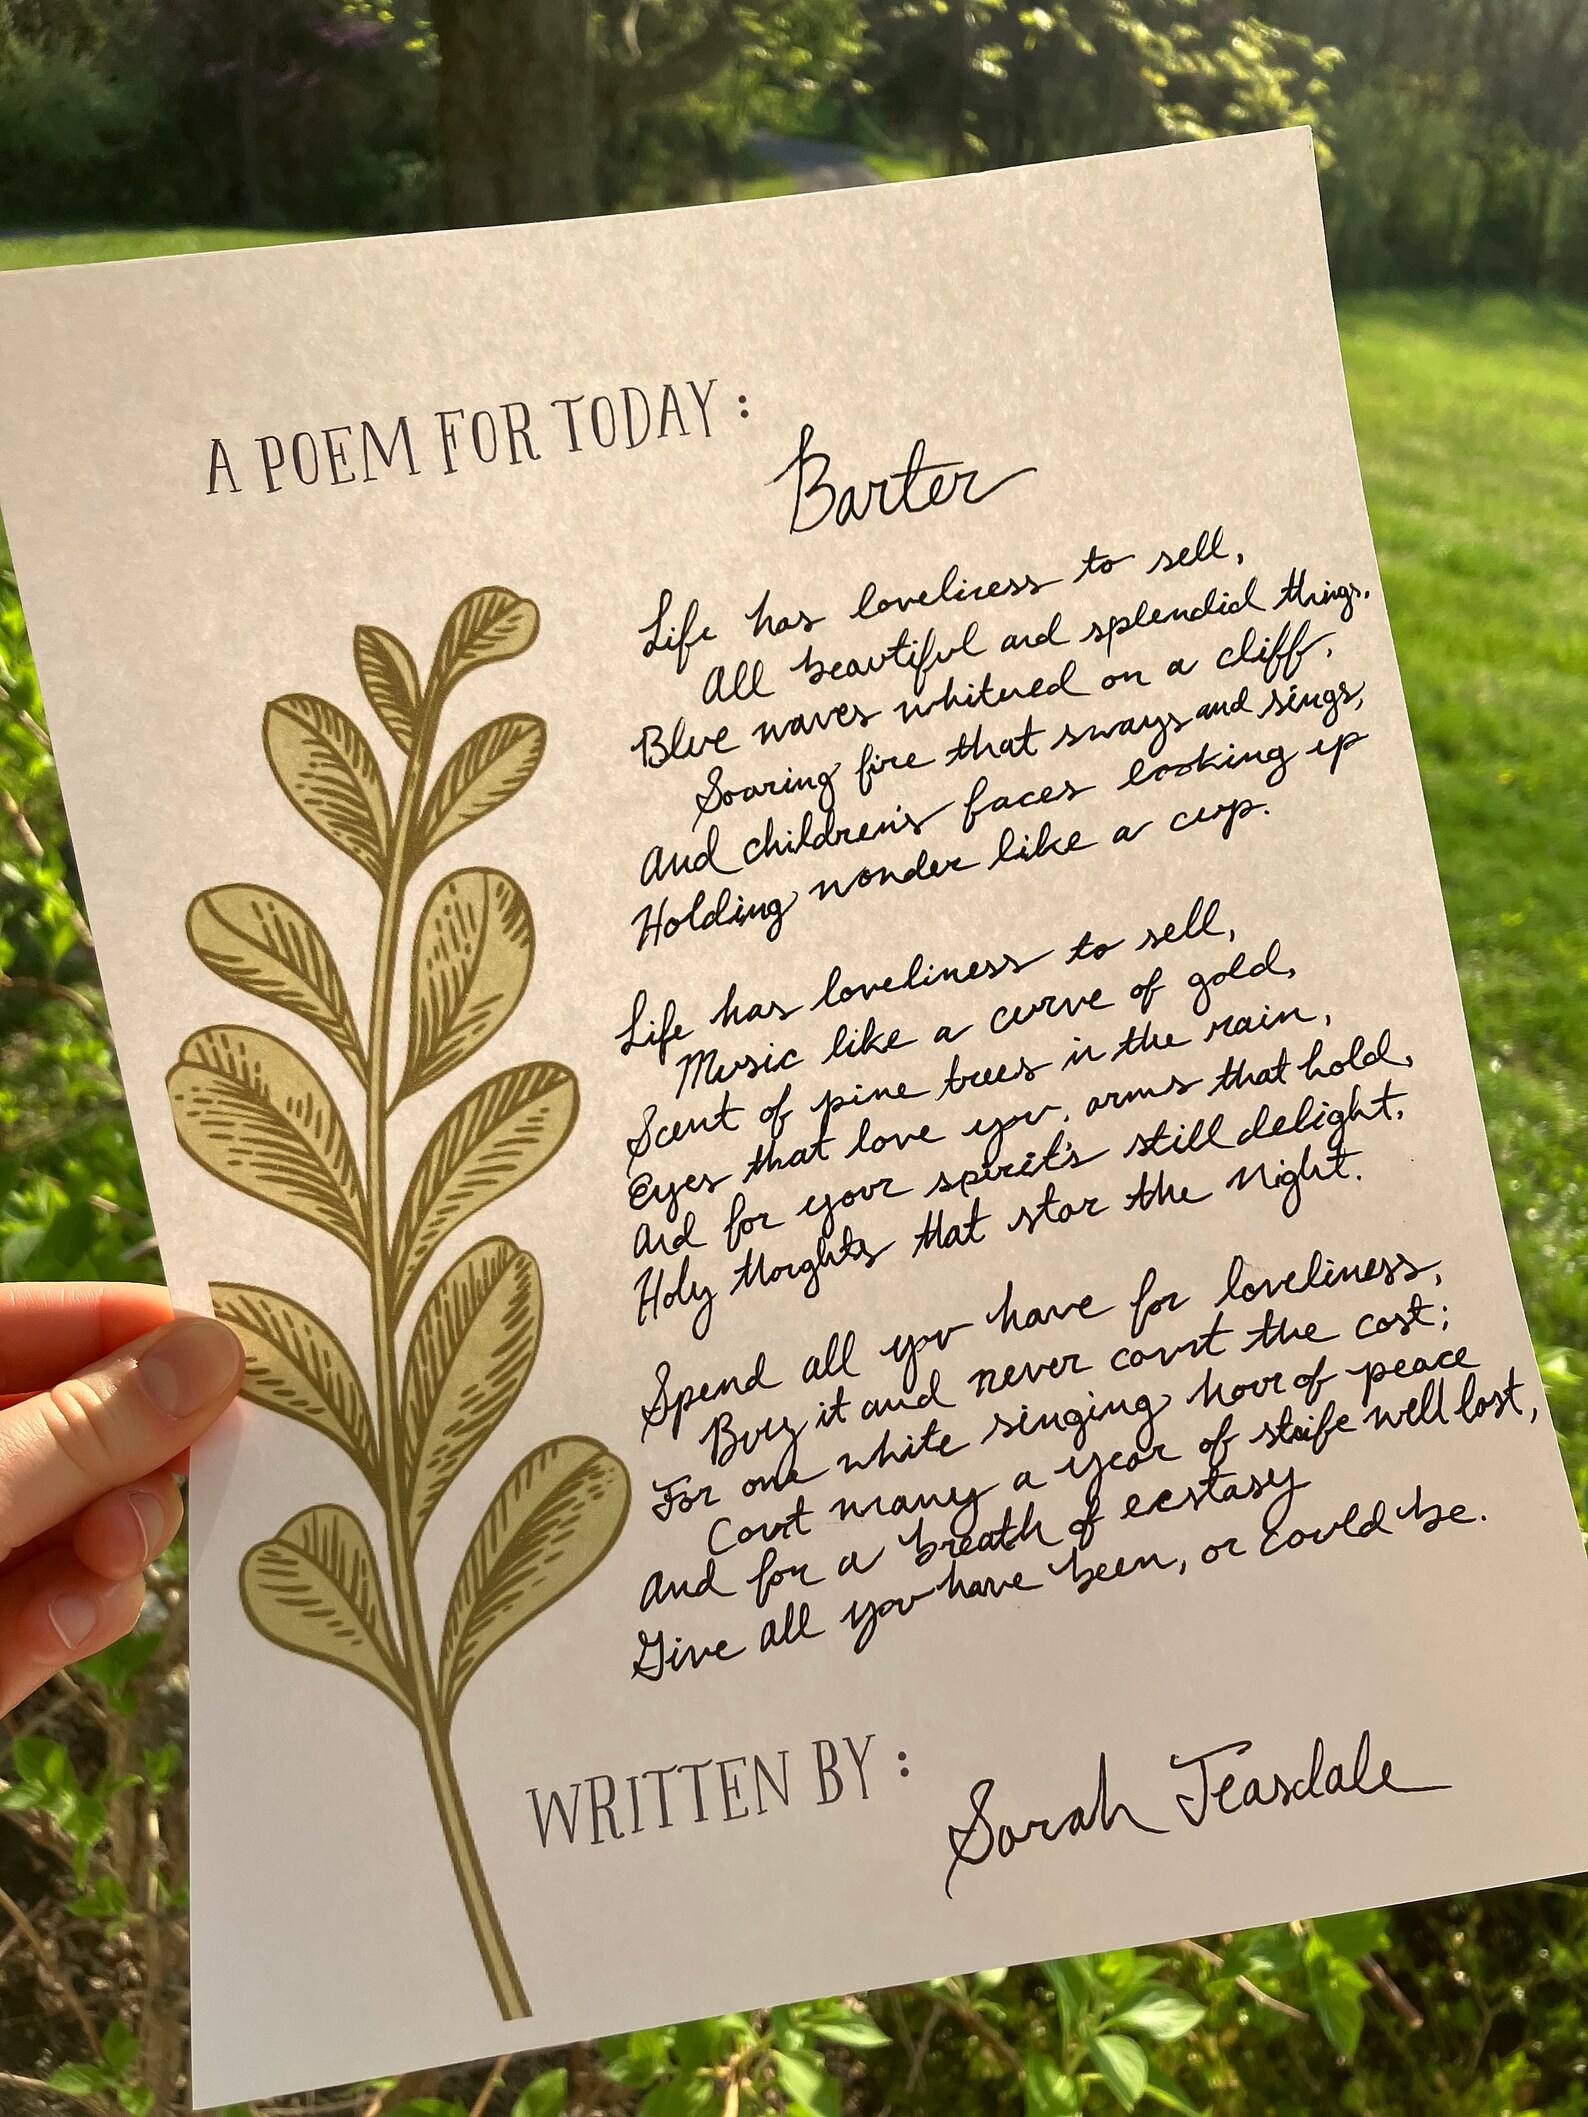 A POEM FOR TODAY:
Barter
Life has loveliness to sell,
All beautiful and splendid things,
Blue waves whitened on a cliff,
Soaring fire that sways and sings,
And children's faces looking up
Holding wonder like a cup.
Life has loveliness to sell,
Music like a curve of gold,
Scent of pine trees in the rain,
Eyes that love you, arms that hold,
And for your spirit's still delight,
Holy thoughts that star the night.
Spend all you have for loveliness,
Buy it and never count the cost;
For one white singing hour of peace
Count many a year of strife well lost,
And for a breath of ecstasy
Give all you have been, or could be.
WRITTEN BY:
Sarah Teasdale